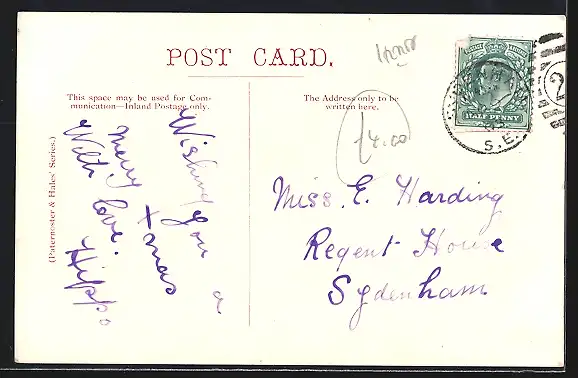 POST CARD.
This space may be used for Com-
munication—Inland Postage only.
The Address only to be
written here.
(Paternoster & Hales' Series.)
Wishing you a
merry Xmas
With love.
Hippo
Miss. E. Harding
Regent House
Sydenham
£4.00
HALF PENNY
S.E.
2